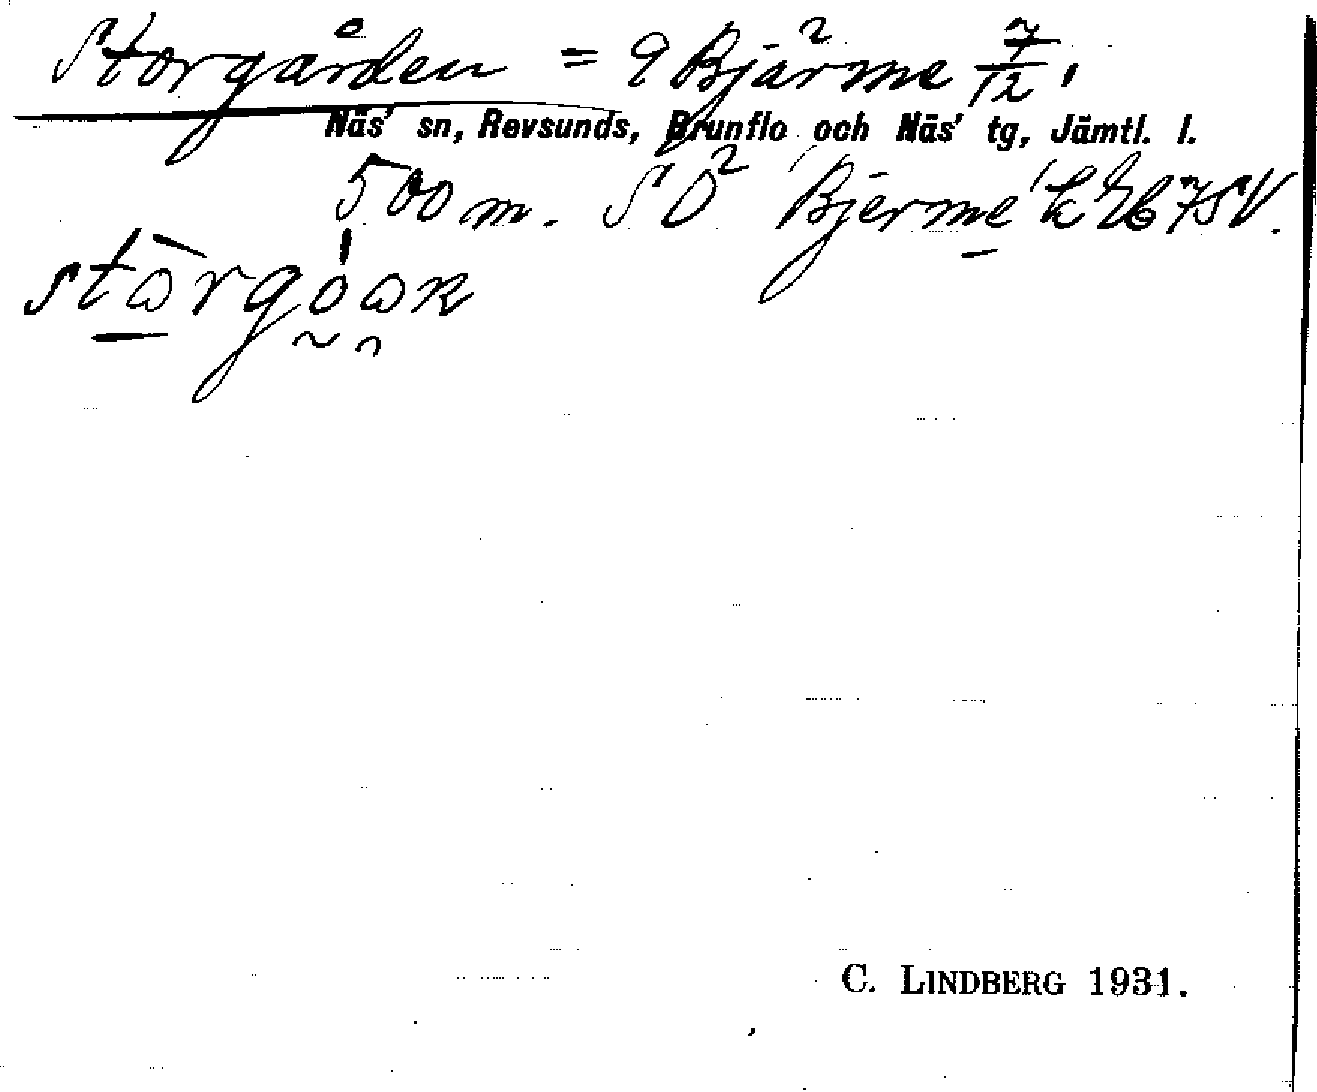 Storgården = 9 Bjärme 7/12,
Näs' sn, Revsunds, Brunflo och Näs' tg, Jämtl. l.
500 m. SO "Bjerme"
C. LINDBERG 1931.